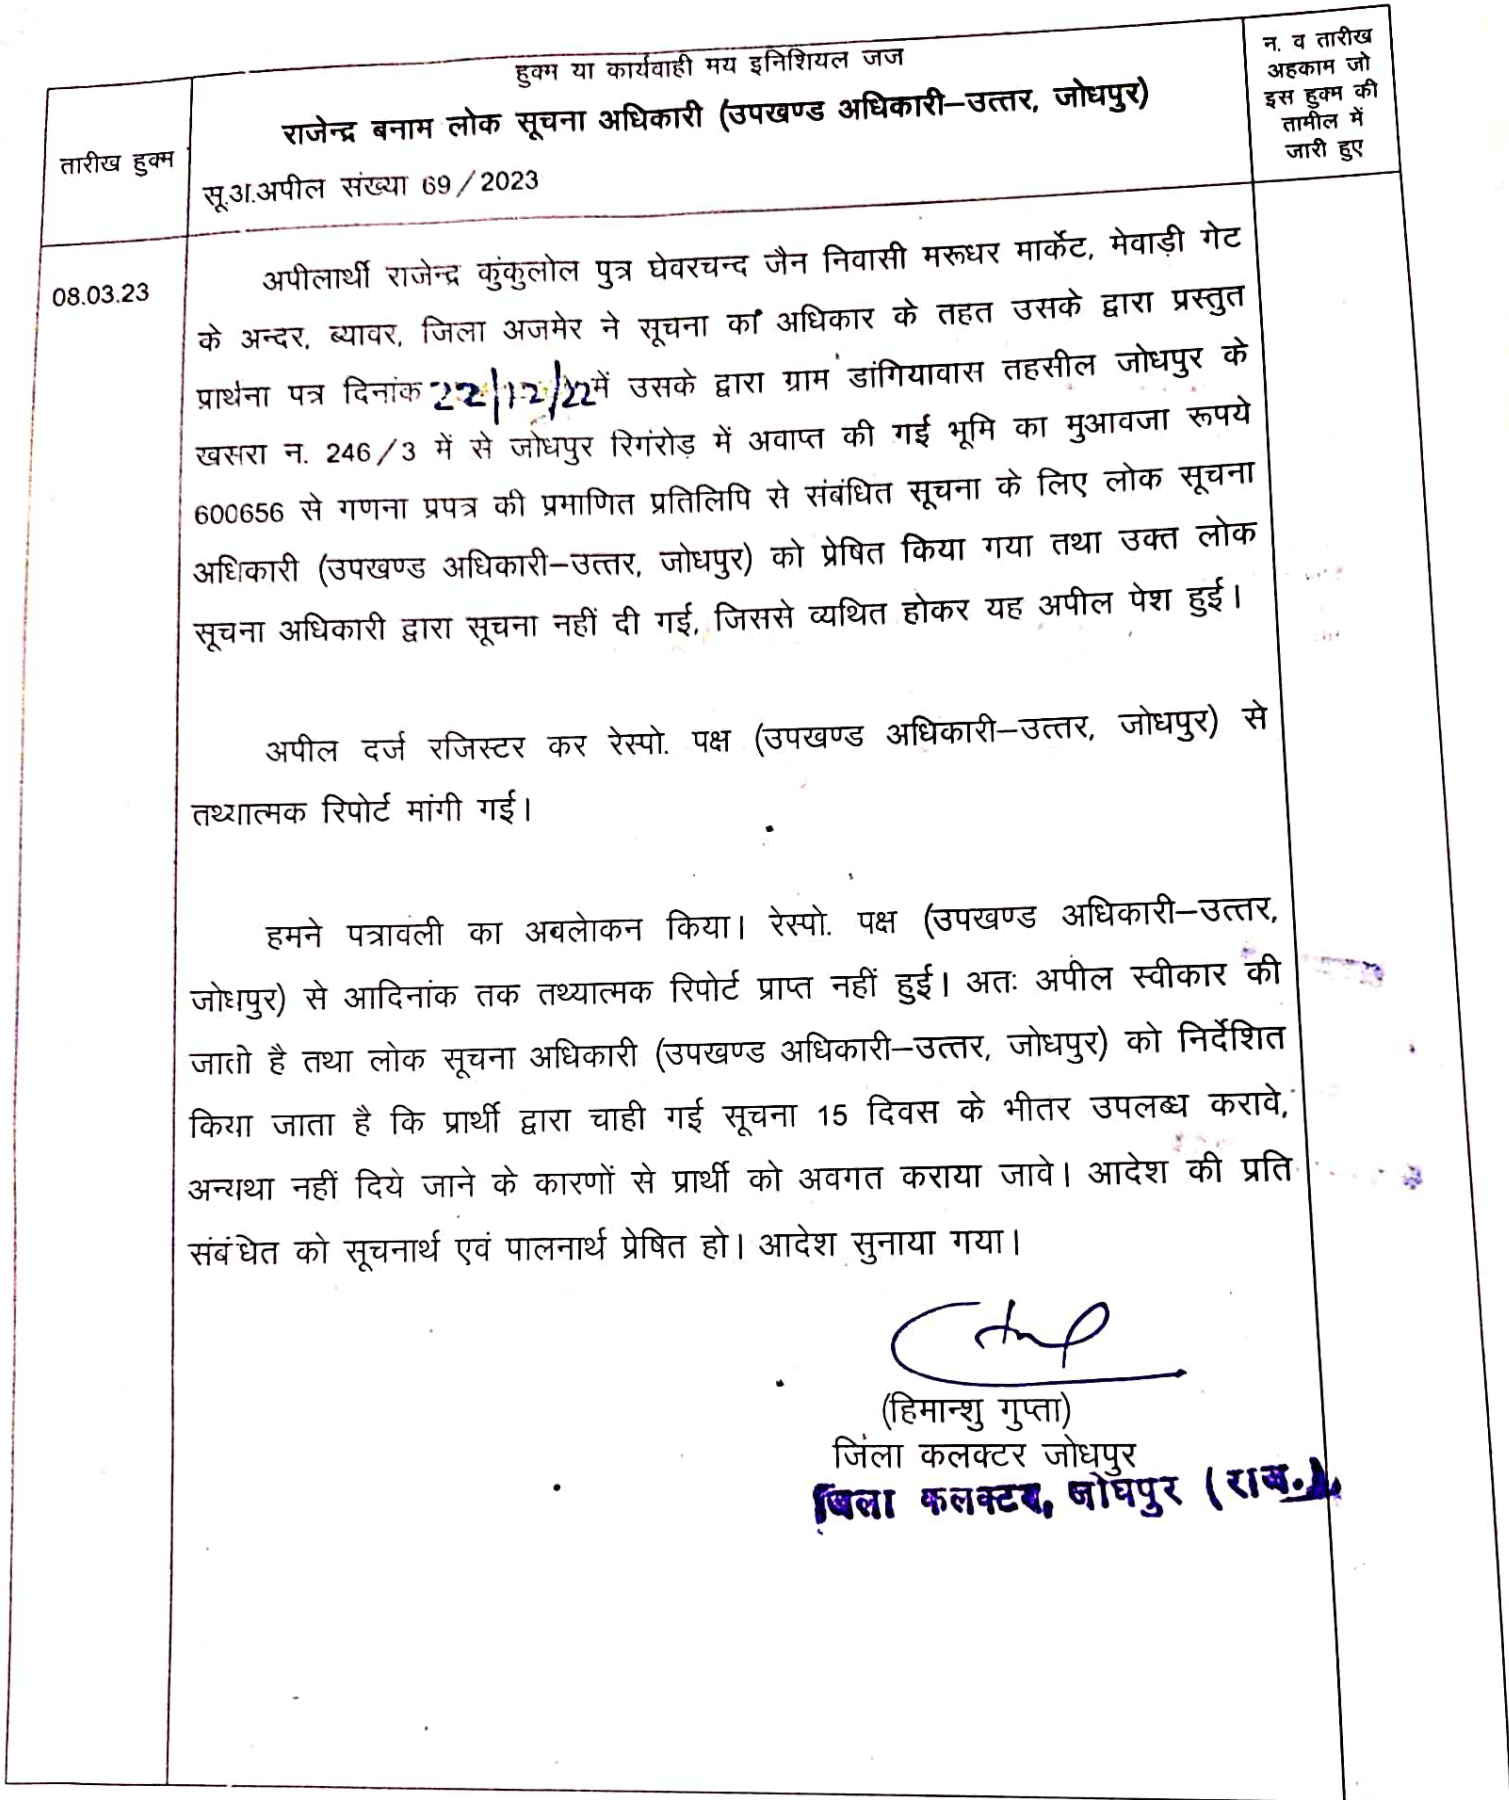 हुक्म या कार्यवाही मय इनिशियल जज
राजेन्द्र बनाम लोक सूचना अधिकारी (उपखण्ड अधिकारी–उत्तर, जोधपुर)
सू.अ.अपील संख्या 69/2023
तारीख हुक्म
न. व तारीख
अहकाम जो
इस हुक्म की
तामील में
जारी हुए
08.03.23
अपीलार्थी राजेन्द्र कुंकुलोल पुत्र घेवरचन्द जैन निवासी मरूधर मार्केट, मेवाड़ी गेट
के अन्दर, ब्यावर, जिला अजमेर ने सूचना का अधिकार के तहत उसके द्वारा प्रस्तुत
प्रार्थना पत्र दिनांक 22/12/22 में उसके द्वारा ग्राम डांगियावास तहसील जोधपुर के
खसरा न. 246/3 में से जोधपुर रिगंरोड़ में अवाप्त की गई भूमि का मुआवजा रूपये
600656 से गणना प्रपत्र की प्रमाणित प्रतिलिपि से संबंधित सूचना के लिए लोक सूचना
अधिकारी (उपखण्ड अधिकारी–उत्तर, जोधपुर) को प्रेषित किया गया तथा उक्त लोक
सूचना अधिकारी द्वारा सूचना नहीं दी गई, जिससे व्यथित होकर यह अपील पेश हुई।
अपील दर्ज रजिस्टर कर रेस्पो. पक्ष (उपखण्ड अधिकारी–उत्तर, जोधपुर) से
तथ्यात्मक रिपोर्ट मांगी गई।
हमने पत्रावली का अवलोकन किया। रेस्पो. पक्ष (उपखण्ड अधिकारी–उत्तर,
जोधपुर) से आदिनांक तक तथ्यात्मक रिपोर्ट प्राप्त नहीं हुई। अतः अपील स्वीकार की
जाती है तथा लोक सूचना अधिकारी (उपखण्ड अधिकारी–उत्तर, जोधपुर) को निर्देशित
किया जाता है कि प्रार्थी द्वारा चाही गई सूचना 15 दिवस के भीतर उपलब्ध करावे,
अन्यथा नहीं दिये जाने के कारणों से प्रार्थी को अवगत कराया जावे। आदेश की प्रति
संबंधित को सूचनार्थ एवं पालनार्थ प्रेषित हो। आदेश सुनाया गया।
(हिमान्शु गुप्ता)
जिला कलक्टर जोधपुर
जिला कलक्टर, जोधपुर (राज.)